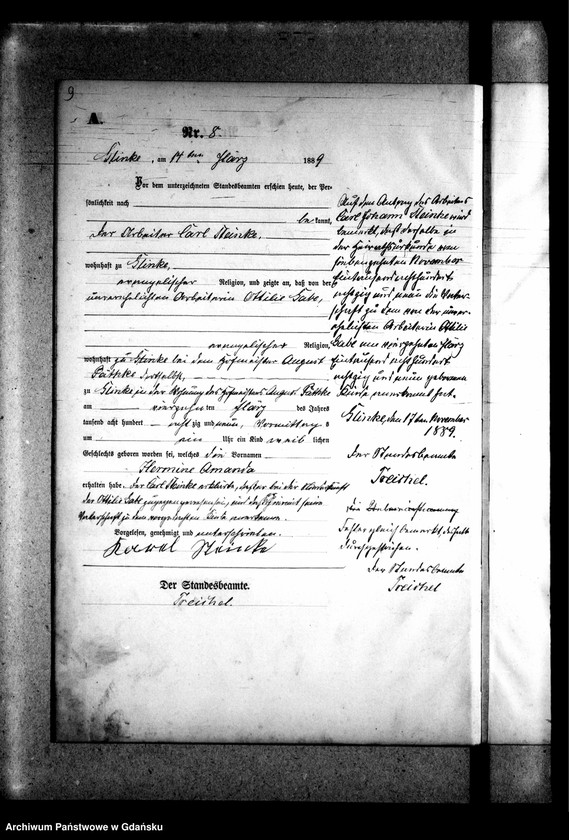 9
A.
Nr. 8.
Glinke, am 14 ten März 1889
Vor dem unterzeichneten Standesbeamten erschien heute, der Per-
sönlichkeit nach
bekannt,
der Arbeiter Carl Steinke,
wohnhaft zu Glinke,
evangelischer Religion, und zeigte an, daß von der
unverehelichten Arbeiterin Ottilie Gabe,
evangelischer Religion,
wohnhaft zu Glinke bei dem Hofmeister August
Pättzke daselbst,
zu Glinke in der Wohnung des Hofmeisters August Pättzke
am vierzehnten März des Jahres
tausend acht hundert achtzig und neun, Vormittags
um ein Uhr ein Kind weiblichen
Geschlechts geboren worden sei, welches den Vornamen
Hermine Amanda
erhalten habe. Der Carl Steinke erklärte, daß er bei der Niederkunft
der Ottilie Gabe zugegen gewesen sei, und daß er hiermit seine
Vaterschaft zu dem vorgedachten Kinde anerkenne.
Vorgelesen, genehmigt und unterschrieben.
Karal Steincke
Der Standesbeamte.
Treichel.
Auf den Antrag des Arbeiters
Carl Johann Steinke wird
bemerkt, daß derselbe in
der Heirathsurkunde vom
siebenzehnten November
Eintausend achthundert
achtzig und neun die Vater-
schaft zu dem von der unver-
ehelichten Arbeiterin Ottilie
Gabe am vierzehnten März
Eintausend achthundert
achtzig und neun geborenen
Kinde anerkannt hat.
Glinke, den 17ten November
1889.
Der Standesbeamte
Treichel.
durchgestrichen.
Der Standesbeamte
Treichel
Archiwum Państwowe w Gdańsku